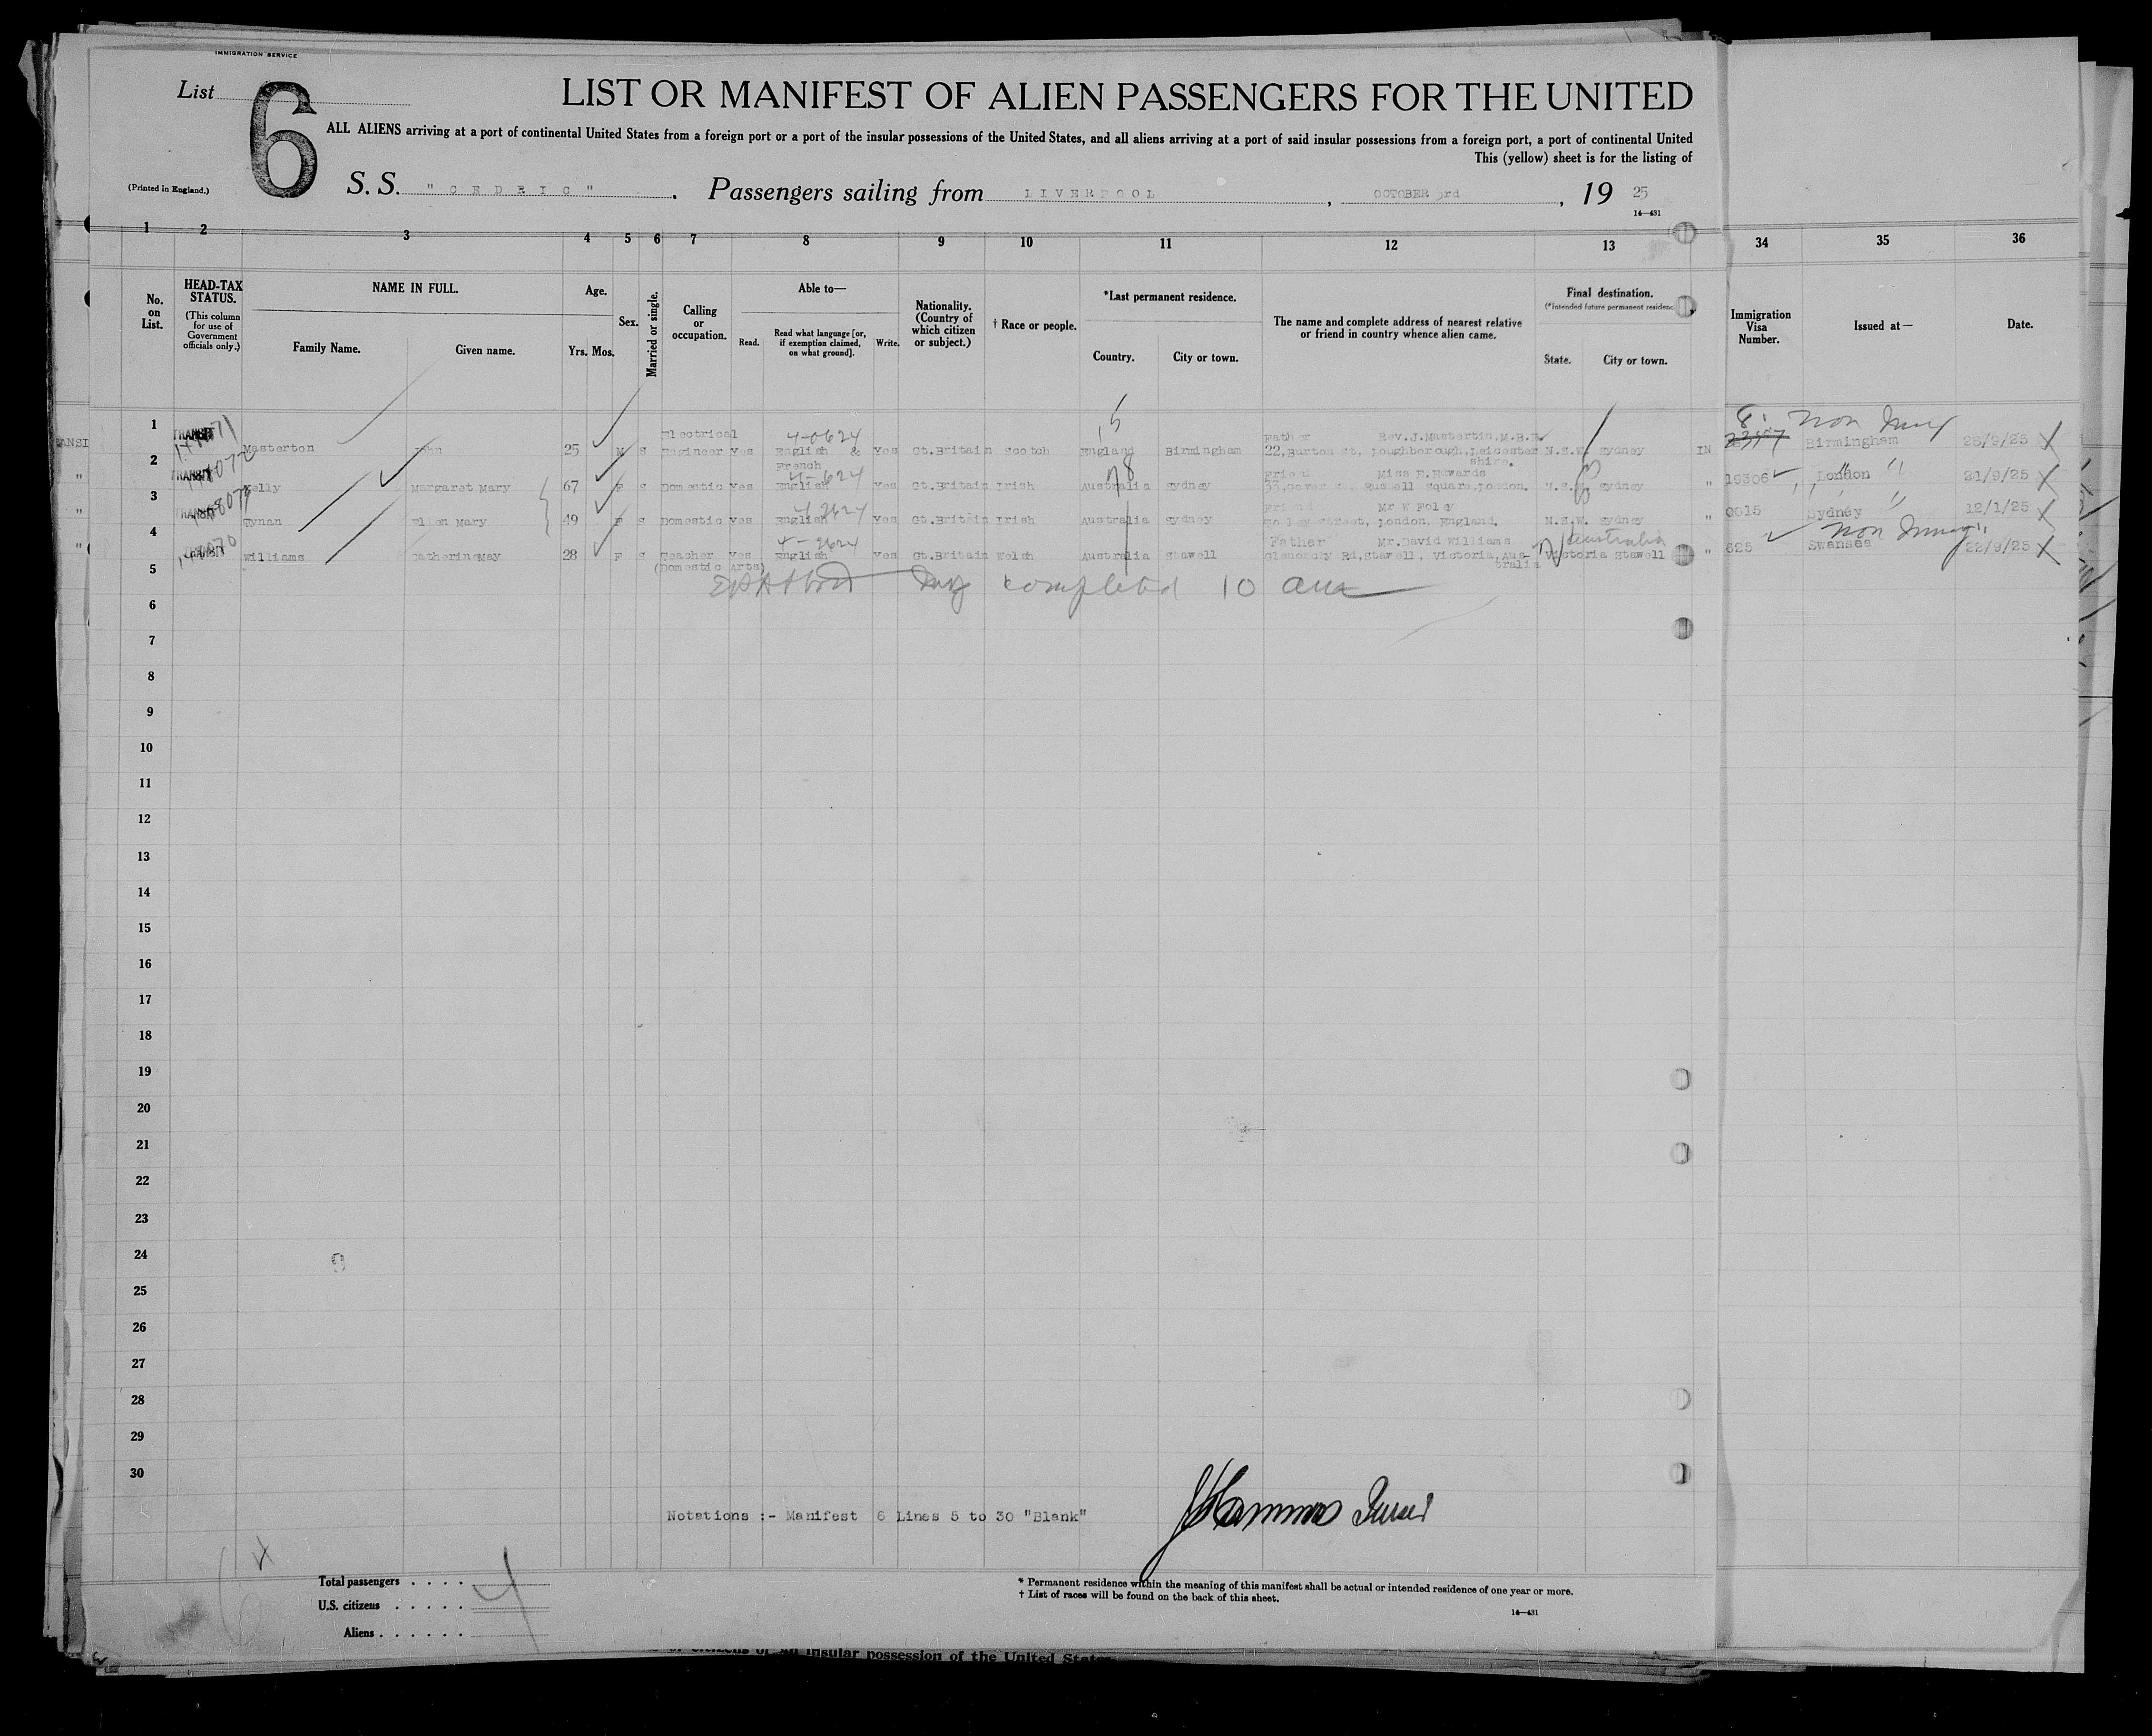 IMMIGRATION SERVICE
List 6
LIST OR MANIFEST OF ALIEN PASSENGERS FOR THE UNITED
ALL ALIENS arriving at a port of continental United States from a foreign port or a port of the insular possessions of the United States, and all aliens arriving at a port of said insular possessions from a foreign port, a port of continental United
This (yellow) sheet is for the listing of
(Printed in England.)
S. S. "CEDRIC". Passengers sailing from LIVERPOOL, OCTOBER 3rd, 19 25
14—431
1 2 3 4 5 6 7 8 9 10 11 12 13 34 35 36
No. on List.
HEAD-TAX STATUS.
(This column for use of Government officials only.)
NAME IN FULL.
Family Name. Given name.
Age.
Yrs. Mos.
Sex.
Married or single.
Calling or occupation.
Able to—
Read. Read what language [or, if exemption claimed, on what ground]. Write.
Nationality. (Country of which citizen or subject.)
† Race or people.
*Last permanent residence.
Country. City or town.
The name and complete address of nearest relative or friend in country whence alien came.
Final destination.
(*Intended future permanent residence
State. City or town.
Immigration Visa Number.
Issued at—
Date.
1 TRANSIT Masterton John 25 M S Electrical Engineer Yes English & French Yes Gt.Britain Scotch England Birmingham Father Rev.J.Mastertin,M.B.E. 22,Burton St, Loughborough,Leicester shire. N.S.W. Sydney Birmingham 25/9/25
2 TRANSIT Kelly Margaret Mary 67 F S Domestic Yes English Yes Gt.Britain Irish Australia Sydney Friend Miss E.Edwards Russell Square,London. N.S.W. Sydney 19306 London 21/9/25
3 TRANSIT Tynan Ellen Mary 49 F S Domestic Yes English Yes Gt.Britain Irish Australia Sydney Friend Mr W Foley Street, London, England. N.S.W. Sydney 0015 Sydney 12/1/25
4 Williams Catherine May 28 F S Teacher (Domestic Arts) Yes English Yes Gt.Britain Welsh Australia Stawell Father Mr.David Williams Rd,Stawell, Victoria,Australia Victoria Stawell 625 Swansea 22/9/25
Non Immg
Australia
Non Immg
5
completed 10 am
6
7
8
9
10
11
12
13
14
15
16
17
18
19
20
21
22
23
24
25
26
27
28
29
30
Notations :- Manifest 6 Lines 5 to 30 "Blank"
Total passengers . . . .
U.S. citizens . . . . .
Aliens . . . . . .
4
* Permanent residence within the meaning of this manifest shall be actual or intended residence of one year or more.
† List of races will be found on the back of this sheet.
14—431
insular possession of the United States